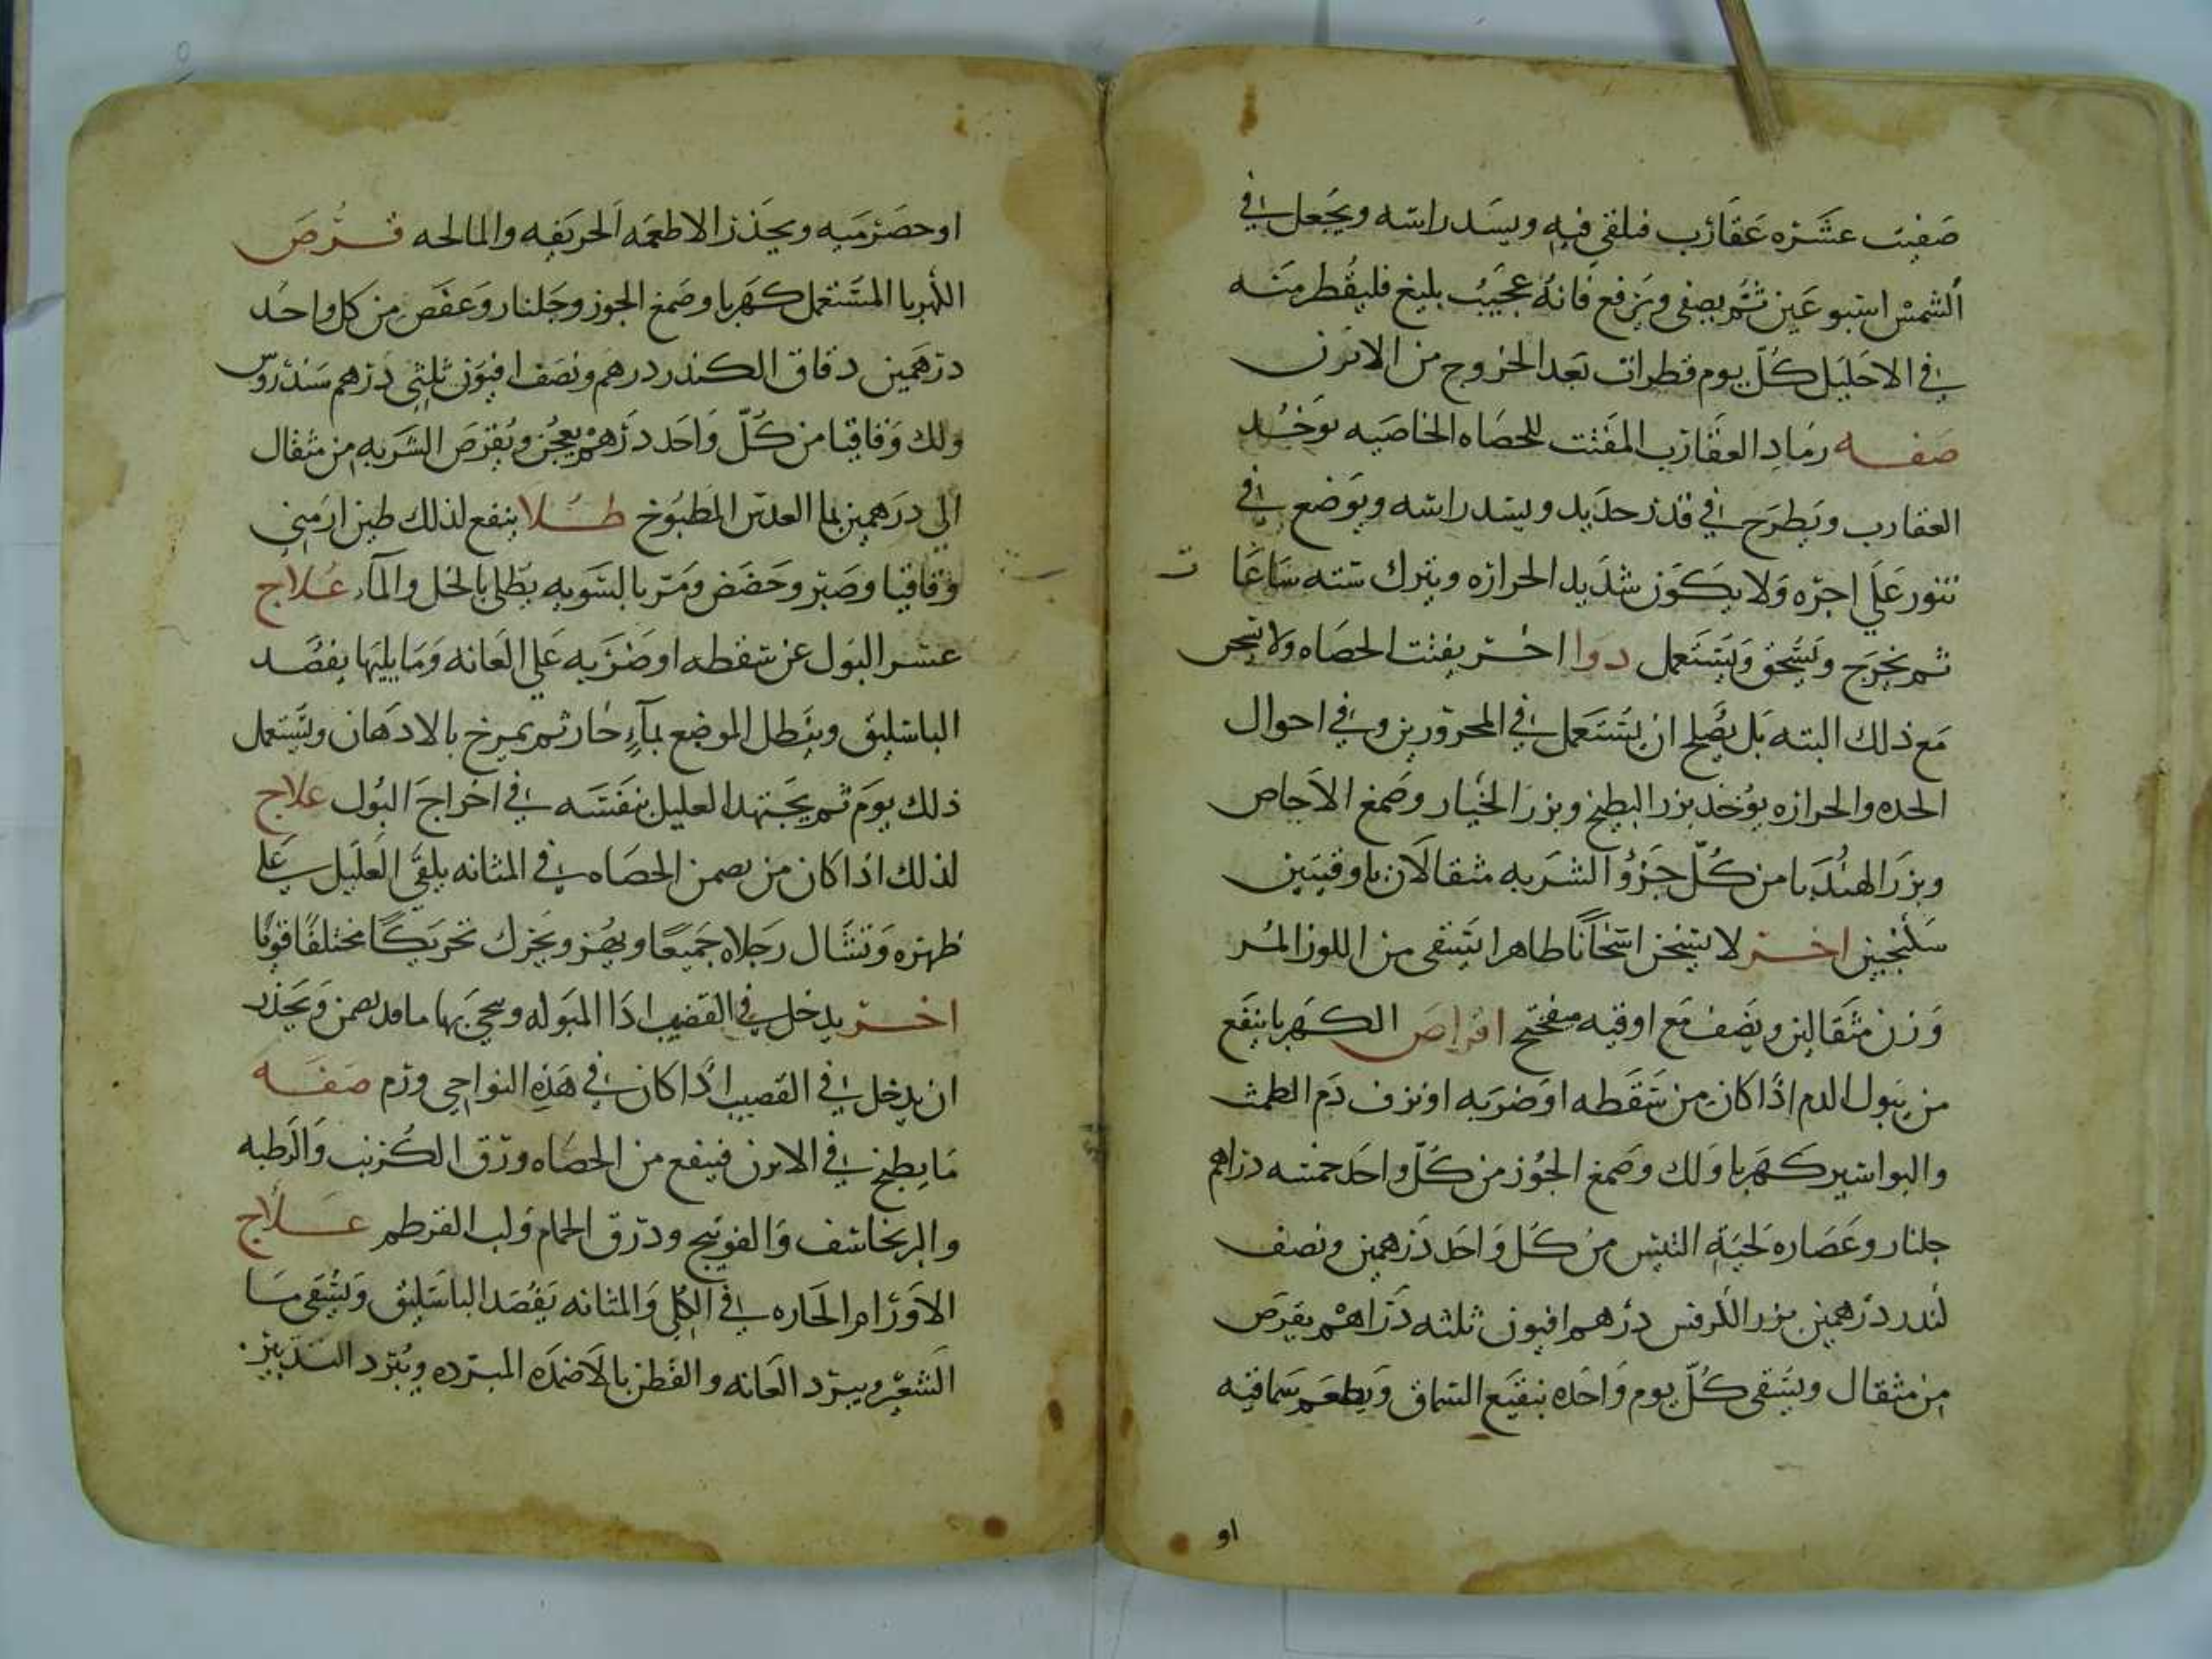 صفيت عشره عقارب فلقى فيه ويسد راسه ويجعل في
الشمس اسبوعين ثم يصفى ويرفع فانه عجيب بليغ فليقطر منه
في الاحليل كل يوم قطرات بعد الخروج من الابزن
صفه رماد العقارب المفتت للحصاه الخاصيه يوخد
العقارب ويطرح في قدر حديد ويسد راسه ويوضع في
تنور على اجره ولا يكون شديد الحراره ويترك سته ساعا
ت
ثم يخرج ويسحق ويستعمل دوا اخر يفتت الحصاه ولا يسحن
مع ذلك البته بل يصلح ان يستعمل في المحرورين وفي احوال
الحده والحراره يوخد بزر البطيخ وبزر الخيار وصمغ الاجاص
وبزر الهندبا من كل جزؤ الشربه مثقالان باوقيتين
سكنجبين اخر لا يسخن اسخانا ظاهرا يستقى من اللوز المر
وزن مثقالين ونصف مع اوقيه ميفختج اقراص الكهربا ينفع
من يبول الدم اذا كان من سقطه او ضربه او نزف دم الطمث
والبواسير كهربا ولك وصمغ الجوز من كل واحد خمسه دراهم
جلنار وعصاره لحية التيس من كل واحد درهمين ونصف
كندر درهمين بزر الكرفس درهم افيون ثلثه دراهم يقرص
من مثقال ويسقى كل يوم واحده بنقيع السماق ويطعم سماقيه
او
او حصرميه ويحذر الاطعمه الحريفه والمالحه قرص
الكهربا المستعمل كهربا وصمغ الجوز وجلنار وعفص من كل واحد
درهمين دقاق الكندر درهم ونصف افيون ثلثي درهم سندروس
ولك وقاقيا من كل واحد درهم يعجن ويقرص الشربه من مثقال
الى درهمين بما العدس المطبوخ طلا ينفع لذلك طين ارمني
وقاقيا وصبر وحضض ومر بالسويه يطلى بالخل والمآء علاج
عسر البول عن سقطه او ضربه على العانه وما يليها يفصد
الباسليق وينطل الموضع بمآء حار ثم يمرخ بالادهان ويستعمل
ذلك يوم ثم يجتهد العليل بنفسه في اخراج البول علاج
لذلك اذا كان من الحصاه في المثانه يلقى العليل على
ظهره وتشال رجلاه جميعا ويهز ويحرك تحريكا مختلفا قويا
اخر يدخل في القضيب اذا المبوله وينحى بها ما قد ويحذر
ان يدخل في القضيب اذا كان في هذه النواحي ورم صفه
ما يطبخ في الابزن فينفع من الحصاه ورق الكرنب والرطبه
والبرنجاسف والفوتنج وذرق الحمام ولب القرطم علاج
الاورام الحاره في الكلى والمثانه يفصد الباسليق ويسقى مآ
الشعير ويبرد العانه والقطن بالاضمده المبرده ويبرد التدبير